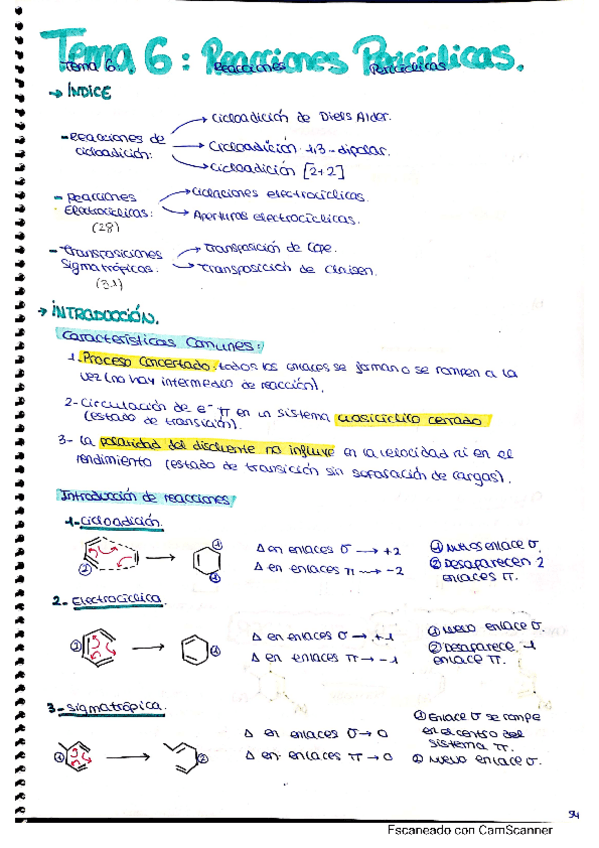 Tema 6: Reacciones Pericíclicas.
Tema 6 Reacciones Pericíclicas.
→ ÍNDICE
- Reacciones de cicloadición:
→ Cicloadición de Diels Alder.
→ Cicloadición 1,3-dipolar.
→ Cicloadición [2+2]
- Reacciones Electrocíclicas:
(28)
→ Ciclaciones electrocíclicas.
→ Aperturas electrocíclicas.
- Transposiciones Sigmatrópicas.
(31)
→ Transposición de Cope.
→ Transposición de Claisen.
→ INTRODUCCIÓN.
Características Comunes:
1. Proceso Concertado: todos los enlaces se forman o se rompen a la
vez (no hay intermedio de reacción).
2- Circulación de e⁻ π en un sistema cuasicíclico cerrado
(estado de transición).
3- La polaridad del disolvente no influye en la velocidad ni en el
rendimiento (estado de transición sin separación de cargas).
Introducción de reacciones:
1- Cicloadición.
② ① ①
Δ en enlaces σ → +2
Δ en enlaces π → -2
① Nuevos enlace σ.
② Desaparecen 2
enlaces π.
2- Electrocíclica.
② ①
Δ en enlaces σ → +1
Δ en enlaces π → -1
① Nuevo enlace σ.
② Desaparece 1
enlace π.
3- Sigmatrópica.
① ②
Δ en enlaces σ → 0
Δ en enlaces π → 0
① Enlace σ se rompe
en el centro del
sistema π.
② Nuevo enlace σ.
54
Escaneado con CamScanner